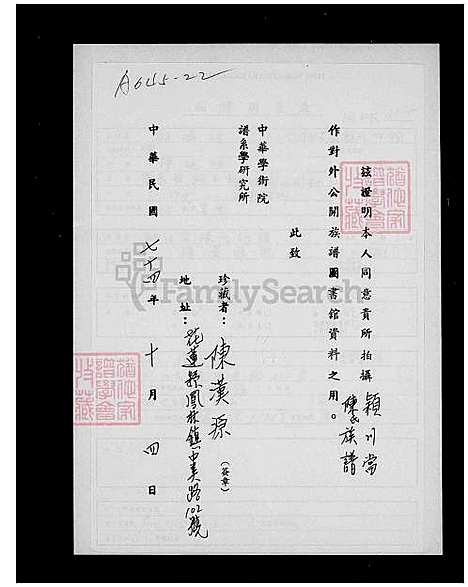 A045-22
茲證明本人同意貴所拍攝 穎川堂
陳氏族譜
作對外公開族譜圖書館資料之用。
此致
中華學術院
譜系學研究所
珍藏者：陳漢源（簽章）
地址：花蓮縣鳳林鎮中美路102號
中華民國七十四年十月四日
FamilySearch